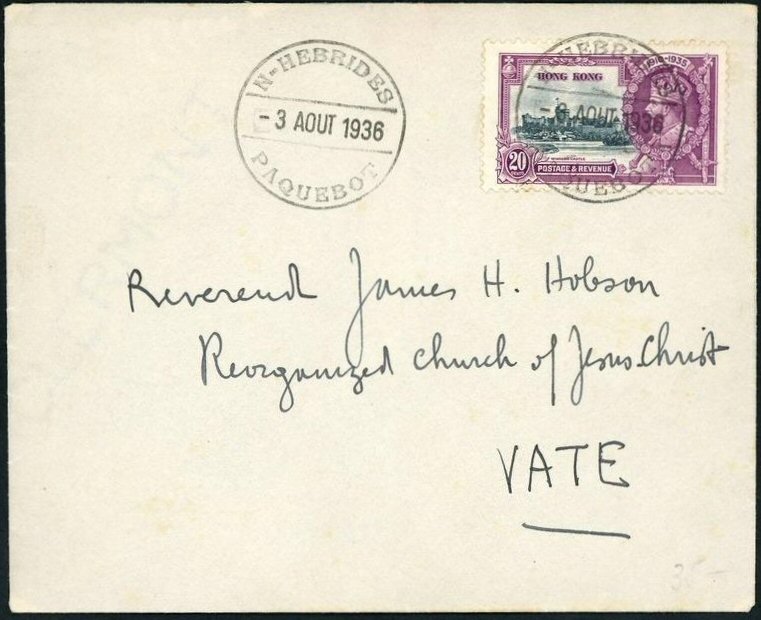 N-HEBRIDES
-3 AOUT 1936
PAQUEBOT
1910-1935
HONG KONG
20
CENTS
WINDSOR CASTLE
POSTAGE & REVENUE
N-HEBRIDES
-3 AOUT 1936
PAQUEBOT
Reverend James H. Hobson
Reorganized Church of Jesus Christ
VATE
35-